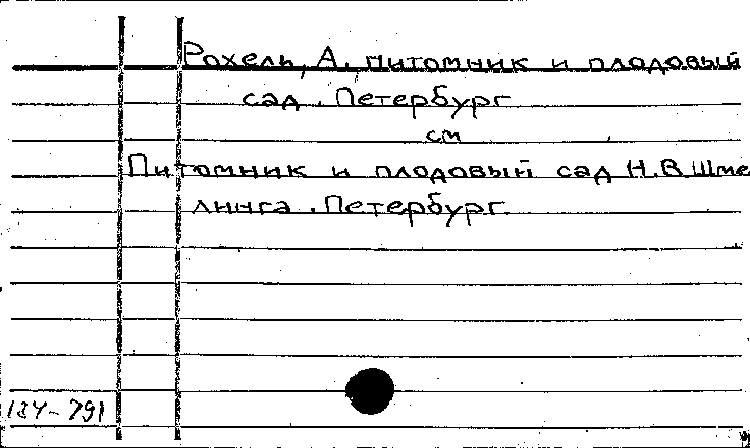 Рохель, А. питомник и плодовый
сад. Петербург
см
Питомник и плодовый сад Н.В. Шме
линга. Петербург.
134-791